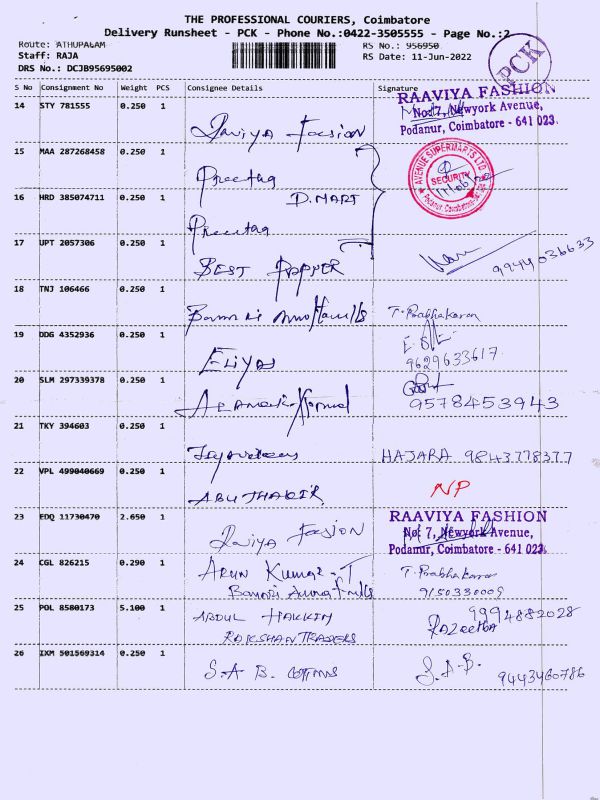 THE PROFESSIONAL COURIERS, Coimbatore
Delivery Runsheet - PCK - Phone No.:0422-3505555 - Page No.:2
Route: ATHUPALAM
RS No.: 956950
Staff: RAJA
RS Date: 11-Jun-2022
DRS No.: DCJB95695002
PCK
S No Consignment No Weight PCS Consignee Details Signature
14 STY 781555 0.250 1
RAAVIYA FASHION
No: 7, Newyork Avenue,
Podanur, Coimbatore - 641 023.
Raviya Fassion
15 MAA 287268458 0.250 1
Preetha
AVENUE SUPERMARTS LTD
SECURITY
Podanur, Coimbatore
16 HRD 385074711 0.250 1
D.MART
Preetha
17 UPT 2057306 0.250 1
BEST PAPPER
9944036633
18 TNJ 106466 0.250 1
Bannari
T. Prabhakaran
19 DDG 4352936 0.250 1
ELIYAS
9629633617
20 SLM 297339378 0.250 1
9578453943
21 TKY 394603 0.250 1
HAJARA 9843778377
22 VPL 499040669 0.250 1
ABUTHAKIR
NP
23 EDQ 11730470 2.650 1
Raviya Fassion
RAAVIYA FASHION
No: 7, Newyork Avenue,
Podanur, Coimbatore - 641 023.
24 CGL 826215 0.290 1
ARUN KUMAR - T
Bannari Ammamills
T. Prabhakaran
9150330009
25 POL 8580173 5.100 1
ABDUL HAKKIM
RAKSHAN TRADERS
9994882028
RAZeetha
26 IXM 501569314 0.250 1
S.A B. COTTONS
S.A.B.
9443460786